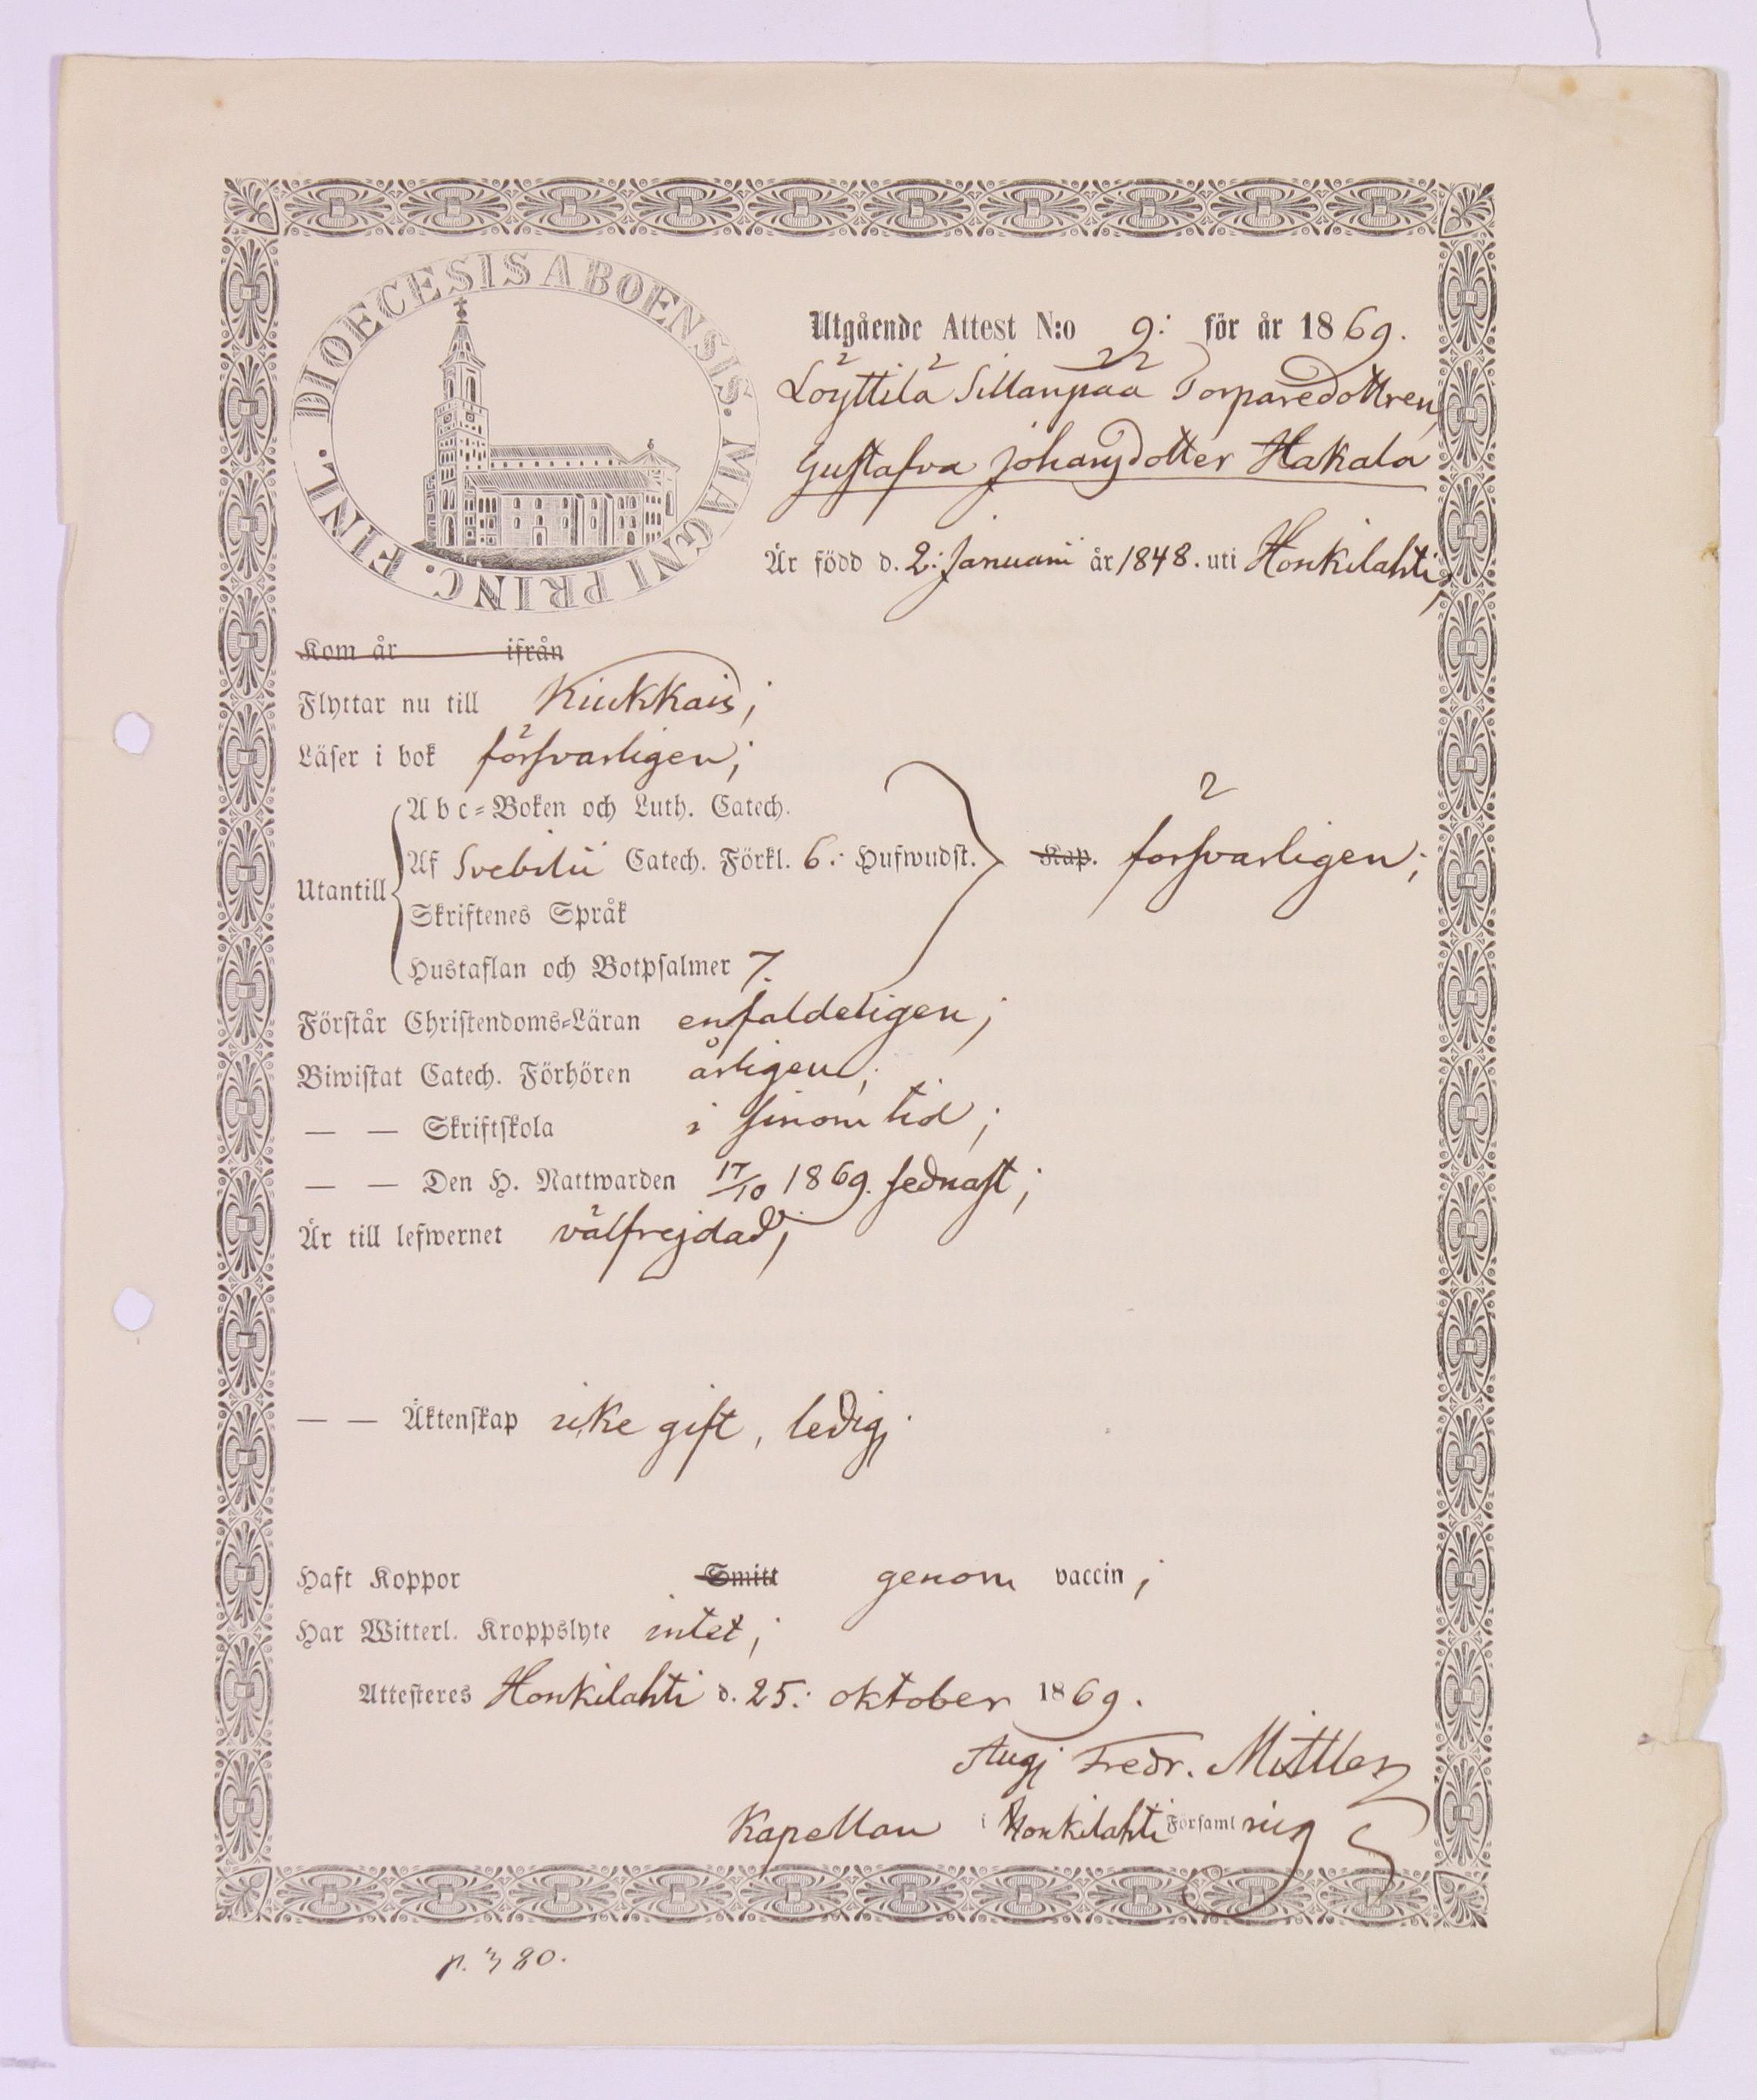 DIOECESIS ABOENSIS. MAGNI PRINC. FINL.
Utgående Attest N:o 9: för år 1869.
Löyttilä Sillanpää Torparedottren,
Gustafva Johansdotter Hakala
Är född d. 2: Januarii år 1848. uti Honkilahti,
Kom år ifrån
Flyttar nu till Kiukkais;
Läser i bok försvarligen;
Abc-Boken och Luth. Catech.
Utantill Af Svebilii Catech. Förkl. 6: Hufwudst. Kap. försvarligen;
Skriftenes Språk
Hustaflan och Botpsalmer 7.
Förstår Christendoms-Läran enfaldeligen;
Biwistat Catech. Förhören årligen;
— — Skriftskola i sinom tid;
— — Den H. Nattwarden 17/10 1869. sednast;
Är till lefwernet välfrejdad;
— — Äktenskap icke gift, ledig;
Haft Koppor Smitt genom vaccin;
Har Witterl. Kroppslyte intet;
Attesteres Honkilahti d. 25: oktober 1869.
Aug. Fredr. Mittler
Kapellan i Honkilahti Församling
p. 380.